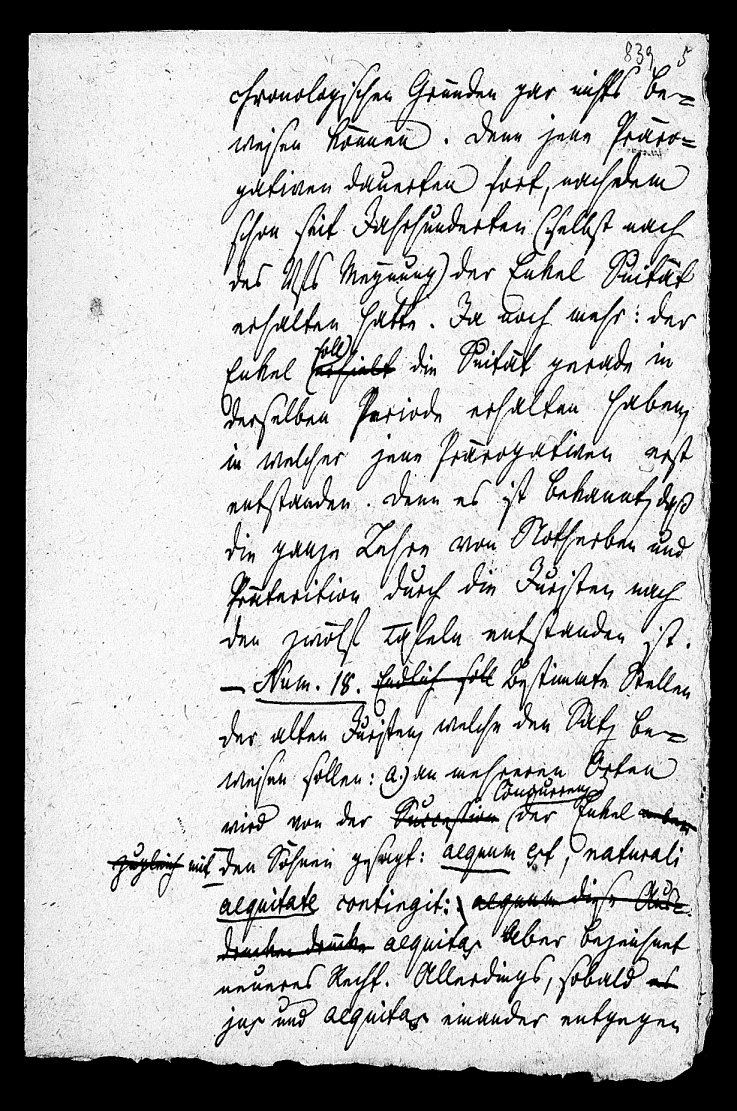 839 5
chronologischen Gründen gar nichts be=
weisen können. Denn jene Präro=
gativen dauerten fort, nachdem
schon seit Jahrhunderten (selbst nach
des Vfs Meynung) der Enkel Suität
erhalten hatte. Ja noch mehr: der
soll
Enkel erhielt die Suität gerade in
derselben Periode erhalten haben,
in welcher jene Prärogativen erst
entstanden. Denn es ist bekannt, daß
die ganze Lehre von Notherben und
Präterition durch die Juristen nach
den zwölf Tafeln entstanden ist.
— Num. 18. Endlich soll Bestimmte Stellen
der alten Juristen, welche den Satz be=
weisen sollen: a.) an mehreren Orten
Concurrenz
wird von der Succession der Enkel neben
zugleich mit den Söhnen gesagt: aequum est, naturali
aequitate contingit: aequum diese Aus=
drücke aequitas Aber bezeichnet
neueres Recht. Allerdings, sobald es
jus und aequitas einander entgegen